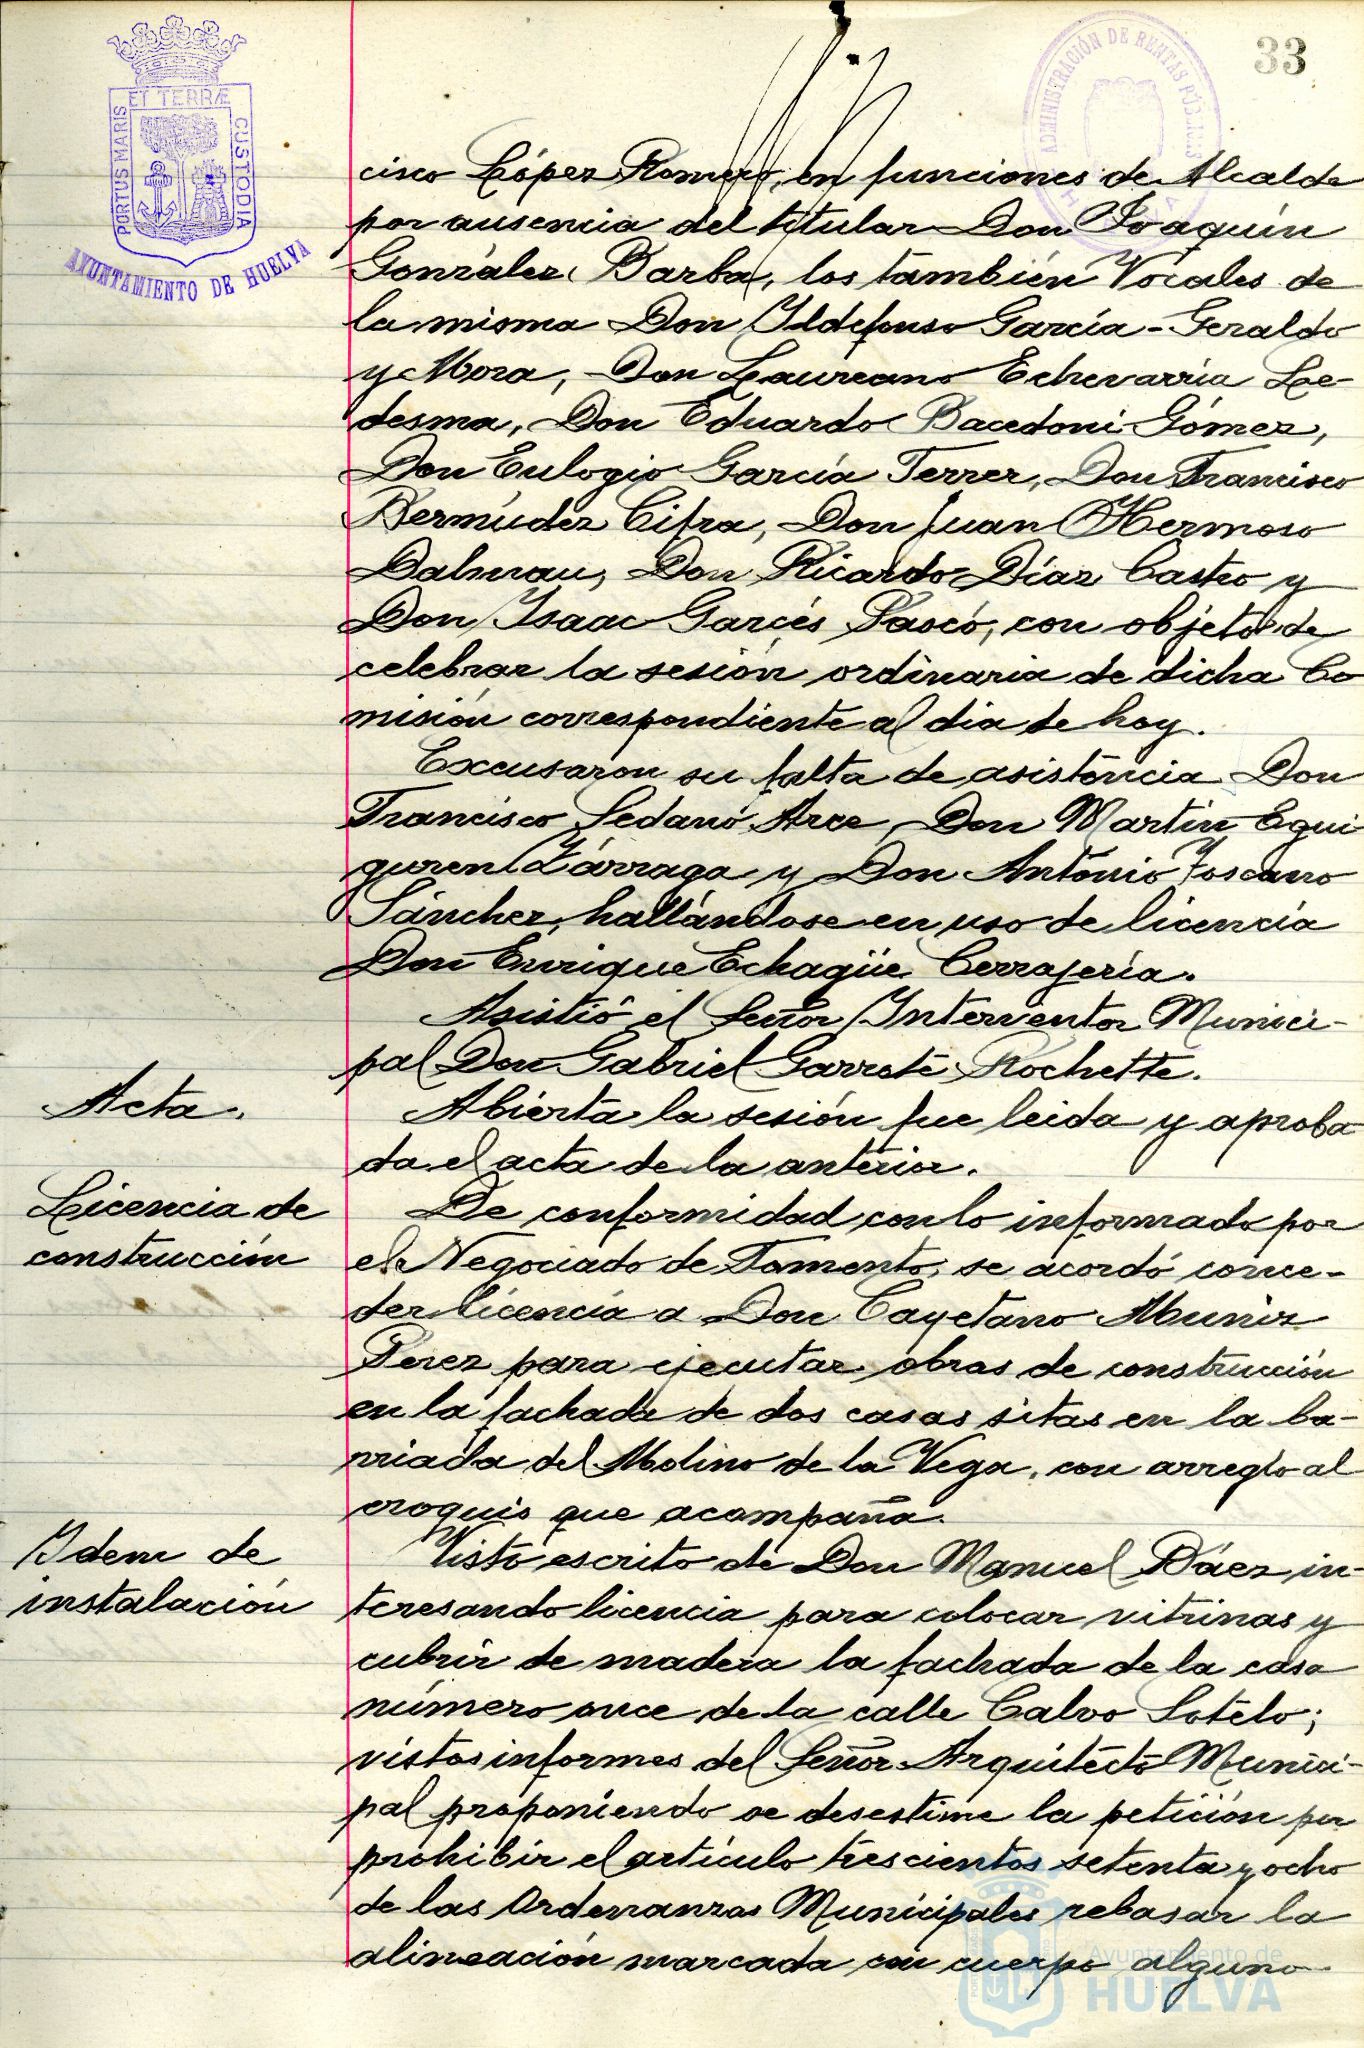 33
PORTUS MARIS ET TERRÆ CUSTODIA
AYUNTAMIENTO DE HUELVA
ADMINISTRACIÓN DE RENTAS PÚBLICAS
cisco López Romero, en funciones de Alcalde
por ausencia del titular Don Joaquín
González Barba, los también Vocales de
la misma Don Ildefonso García-Geraldo
y Mora, Don Laureano Echevarría Le-
desma, Don Eduardo Bacedoni Gómez,
Don Eulogio García Terrer, Don Francisco
Bermúdez Cifra, Don Juan Hermoso
Dalmau, Don Ricardo Díaz Castro y
Don Isaac Garcés Pascó, con objeto de
celebrar la sesión ordinaria de dicha Co
misión correspondiente al dia de hoy.
Excusaron su falta de asistencia Don
Francisco Sedano Arce, Don Martín Egui
guren Zárraga y Don Antonio Toscano
Sánchez, hallándose en uso de licencia
Don Enrique Echagüe Cerrajería.
Asistió el Señor Interventor Munici-
pal Don Gabriel Garrote Rochette.
Acta.
Abierta la sesión fue leida y aproba
da el acta de la anterior.
Licencia de
construcción
De conformidad con lo informado por
el Negociado de Fomento, se acordó conce-
der licencia a Don Cayetano Muniz
Perez para ejecutar obras de construcción
en la fachada de dos casas sitas en la ba-
rriada del Molino de la Vega, con arreglo al
croquis que acompaña.
Idem de
instalación
Visto escrito de Don Manuel Báez in-
teresando licencia para colocar vitrinas y
cubrir de madera la fachada de la casa
número once de la calle Calvo Sotelo;
vistos informes del Señor Arquitecto Munici-
pal proponiendo se desestime la petición por
prohibir el artículo trescientos setenta y ocho
de las Ordenanzas Municipales rebasar la
alineación marcada con cuerpo alguno
Ayuntamiento de
HUELVA